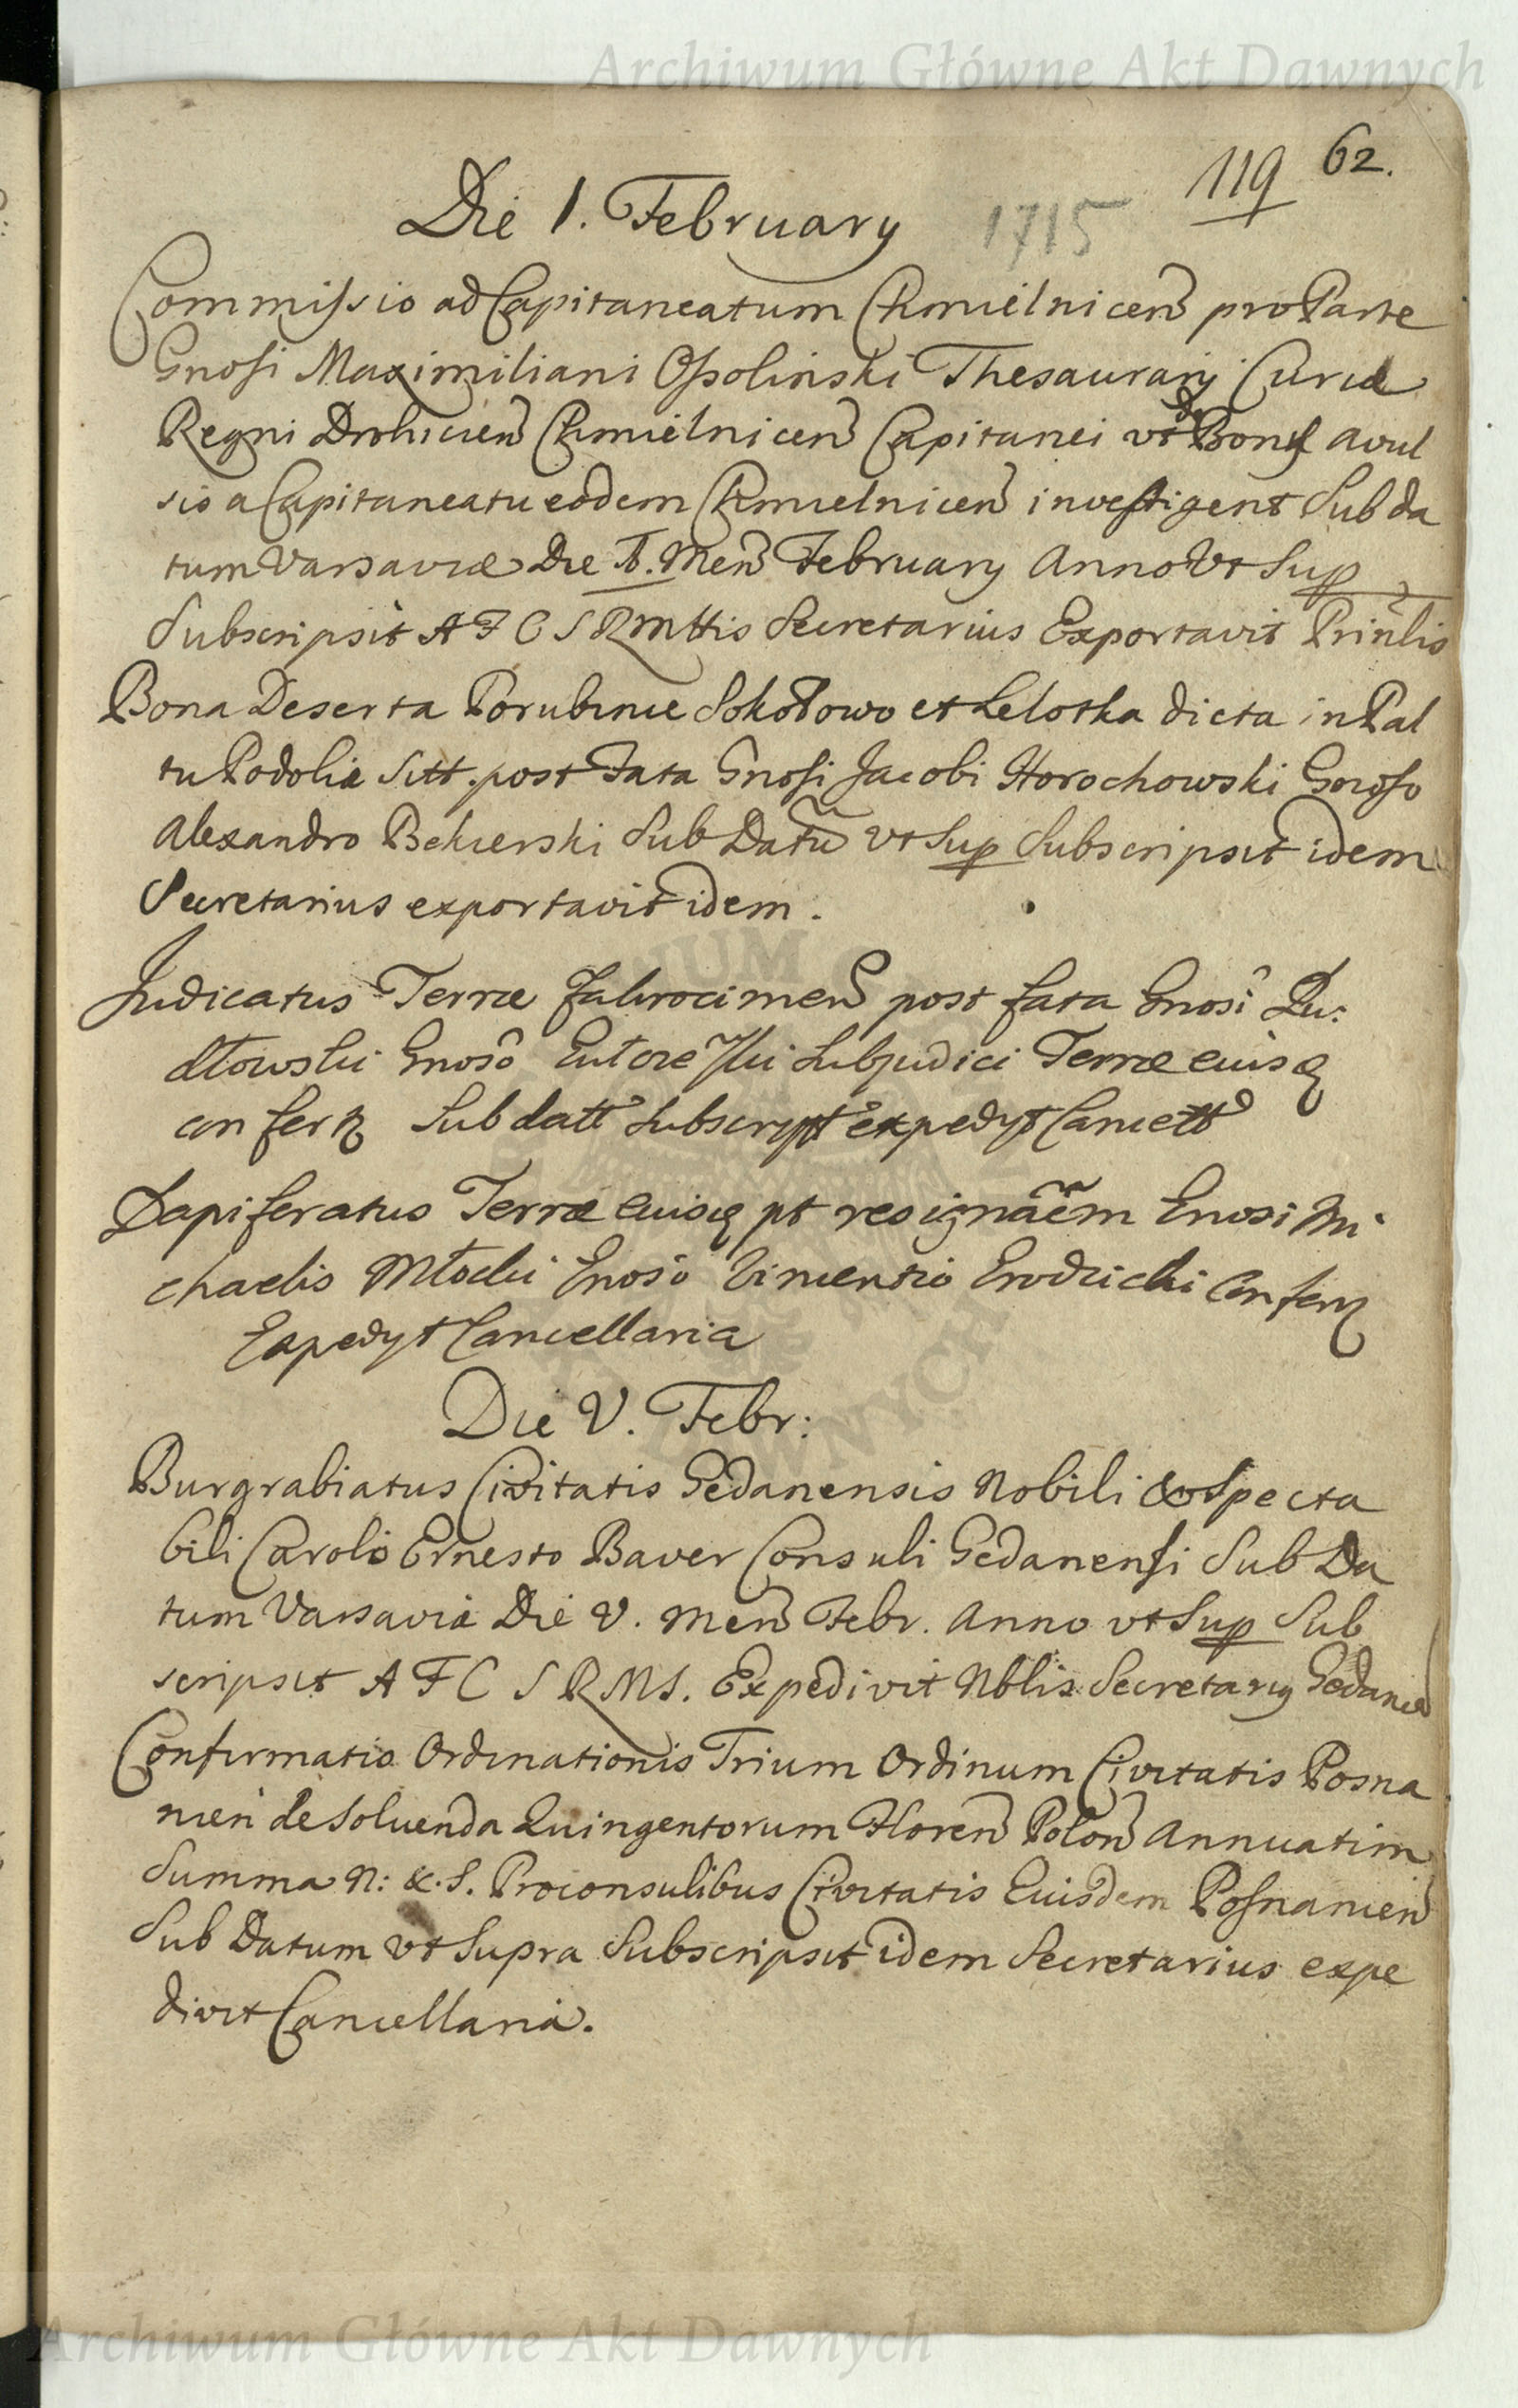 Archiwum Główne Akt Dawnych
119 62.
Die 1. February 1715
Commissio ad Capitaneatum Chmielnicen pro Parte
Gnosi Maximiliani Ossolinski Thesaurarij Curiæ
Regni Drohicien Chmielnicen Capitanei vt de Bonis avul
sis a Capitaneatu eodem Chmielnicen investigent Sub da
tum Varsaviæ Die 1. Men February Anno Vt Sup
Subscripsit A F C S R Mttis Secretarius Exportavit Prinlis
Bona Deserta Porubinie Sokołowo et Lelotka dicta in Pal
tu Podoliæ Sitt. post Fata Gnosi Jacobi Horochowski Gnoso
Alexandro Bekierski Sub Datu vt Sup Subscripsit idem
Secretarius exportavit idem.
Judicatus Terræ Zakrocimen post fata Gnosi
Gnoso Subjudici Terræ eiusq
confert Sub datt subscrypt expedyt Cancell
Dapiferatus Terræ eiusq pt resignaem Gnosi Mi
chaelis Młocki Gnoso Vincentio Grodzicki Confert
Expedyt Cancellaria
Die V. Febr:
Burgrabiatus Civitatis Gedanensis Nobili & Specta
bili Carolo Ernesto Baver Consuli Gedanensi Sub Da
tum Varsaviæ Die V. Men Febr. Anno vt Sup Sub
scripsit A F C S R M S. Expedivit Nblis Secretarij Gedanen
Confirmatio Ordinationis Trium Ordinum Civitatis Posna
nien de Soluenda Quingentorum Floren Polon Annuatim
Summa N: &. S. Proconsulibus Civitatis Eiusdem Posnanien
Sub Datum vt Supra Subscripsit idem Secretarius expe
divit Cancellaria.
Archiwum Główne Akt Dawnych